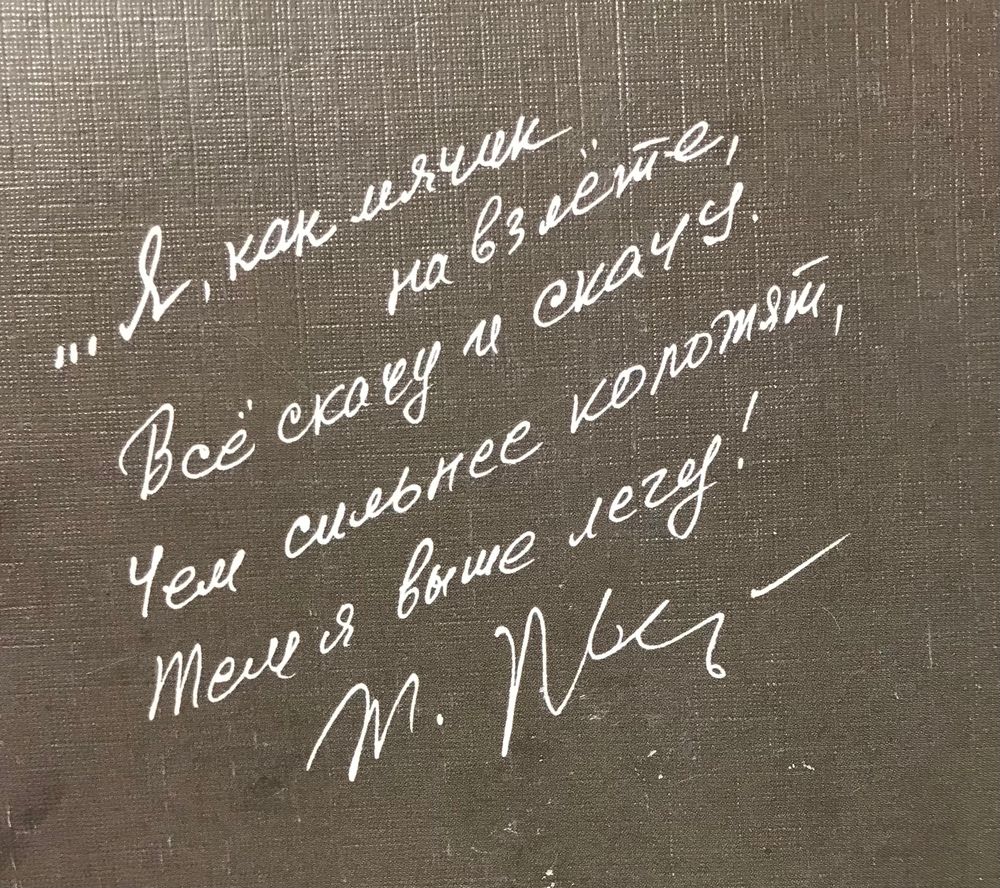 ...Я, как мячик
на взлёте,
Всё скачу и скачу.
Чем сильнее колотят,
Тем я выше лечу!